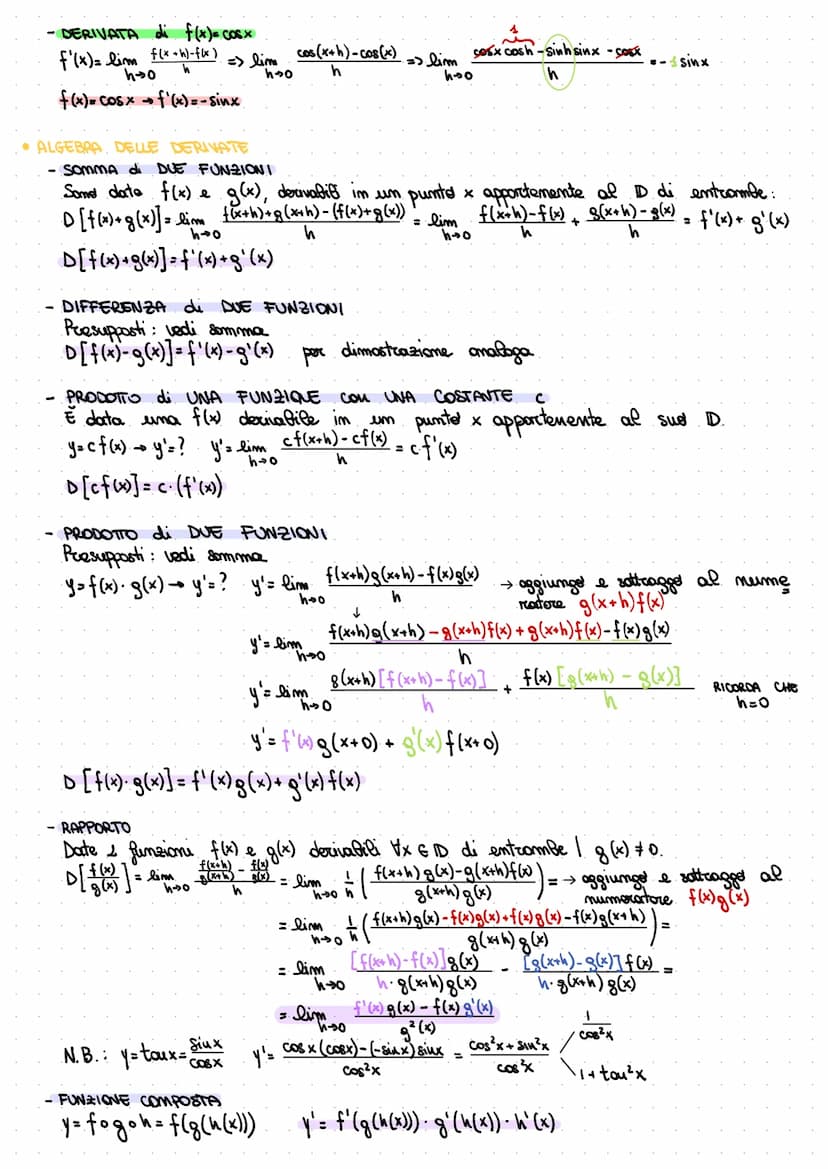 - DERIVATA di f(x)=cosx
f'(x)= lim h→0 (f(x+h)-f(x))/h => lim h→0 (cos(x+h)-cos(x))/h => lim h→0 (cosx cosh - sinh sinx - cosx)/h = -1 sinx
1
f(x)= cosx → f'(x)=-sinx
• ALGEBRA DELLE DERIVATE
- SOMMA di DUE FUNZIONI
Sono date f(x) e g(x), derivabili in un punto x appartenente al D di entrambe:
D[f(x)+g(x)]= lim h→0 (f(x+h)+g(x+h)-(f(x)+g(x)))/h = lim h→0 (f(x+h)-f(x))/h + (g(x+h)-g(x))/h = f'(x)+ g'(x)
D[f(x)+g(x)]=f'(x)+g'(x)
- DIFFERENZA di DUE FUNZIONI
Presupposti: vedi somma
D[f(x)-g(x)]=f'(x)-g'(x) per dimostrazione analoga
- PRODOTTO di UNA FUNZIONE con UNA COSTANTE c
È data una f(x) derivabile in un punto x appartenente al suo D.
y=cf(x) → y'=? y'= lim h→0 (cf(x+h)-cf(x))/h = cf'(x)
D[cf(x)]= c·(f'(x))
- PRODOTTO di DUE FUNZIONI
Presupposti: vedi somma
y=f(x)·g(x) → y'=? y'= lim h→0 (f(x+h)g(x+h)-f(x)g(x))/h → aggiungo e sottraggo al nume
ratore g(x+h)f(x)
↓
y'= lim h→0 (f(x+h)g(x+h)-g(x+h)f(x)+g(x+h)f(x)-f(x)g(x))/h
y'= lim h→0 g(x+h)[f(x+h)-f(x)]/h + f(x)[g(x+h)-g(x)]/h RICORDA CHE
h=0
y'= f'(x)g(x+0) + g'(x)f(x+0)
D[f(x)·g(x)]= f'(x)g(x)+ g'(x)f(x)
- RAPPORTO
Date 2 funzioni f(x) e g(x) derivabili ∀x∈D di entrambe | g(x)≠0.
D[f(x)/g(x)]= lim h→0 (f(x+h)/g(x+h) - f(x)/g(x))/h = lim h→0 1/h ((f(x+h)g(x)-g(x+h)f(x))/(g(x+h)g(x))) = → aggiungo e sottraggo al
numeratore f(x)g(x)
= lim h→0 1/h ((f(x+h)g(x)-f(x)g(x)+f(x)g(x)-f(x)g(x+h))/(g(x+h)g(x))) =
= lim h→0 [f(x+h)-f(x)]g(x)/(h·g(x+h)g(x)) - [g(x+h)-g(x)]f(x)/(h·g(x+h)g(x)) =
= lim h→0 (f'(x)g(x)-f(x)g'(x))/g²(x)
N.B.: y=tanx= sinx/cosx y'= (cosx(cosx)-(-sinx)sinx)/cos²x = (cos²x+sin²x)/cos²x
1/cos²x
1+tan²x
- FUNZIONE COMPOSTA
y= f∘g∘h= f(g(h(x))) y'= f'(g(h(x)))·g'(h(x))·h'(x)